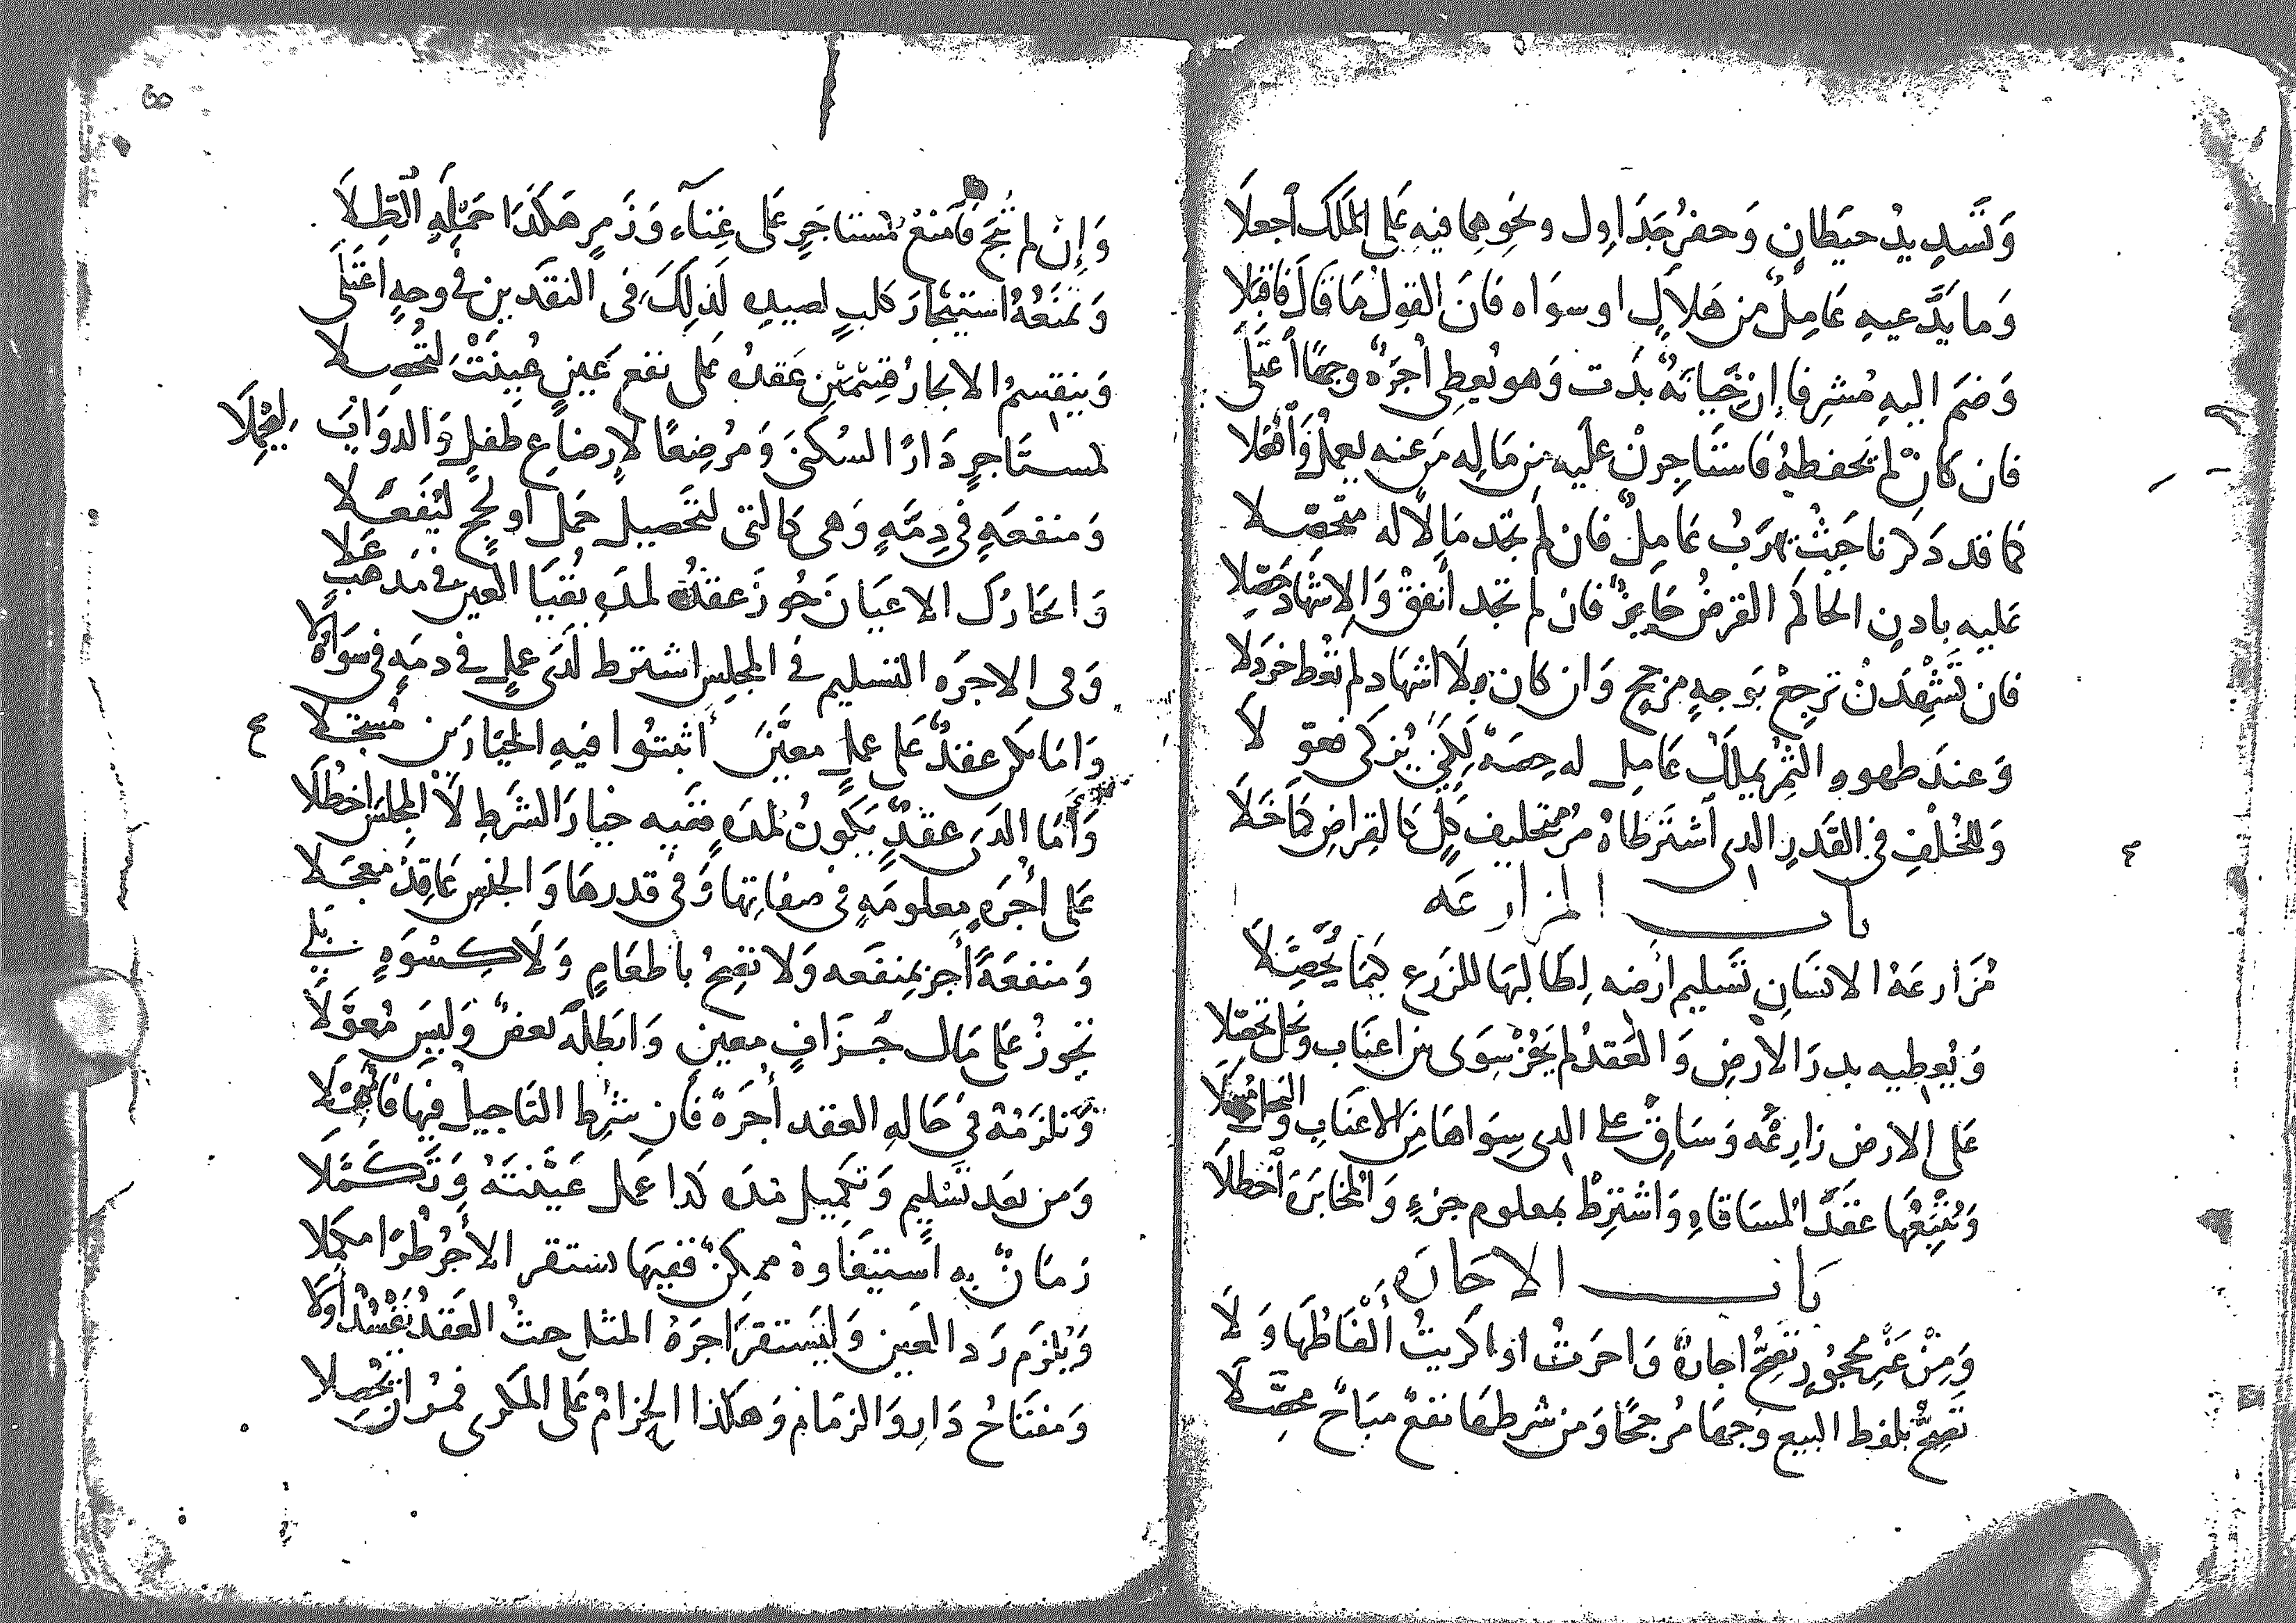 وَتَسدِيدُ حيَطانٍ وَحفرُ جَدَاوِل ونحَوِهِما فيهِ عَلى المَلَكَ ٱجعلَا
وَما يَدَّعيهِ عَامِلٌ من هَلاَلٍ او سوَاه فَانَ القولُ مَا قَالَ فَاقبَلا
وَضمَ اليهِ مُشرِفا إِن خِيَانَةٌ بدَت وَهو يُعطى أُجرَةً وجهًا ٱعتَلَى
فان كَانْ لم تحفظهُ فَاستَاجِرنْ علَيه من مَالِه مَن عنه يعملُ وَٱفعَلا
كما قد دَكرنا حَيثُ يَهرَبُ عَامِلٌ فان لَم تجَد مَالًا له متحَصِّلا
عَليهِ بادنِ الحاكم القرضُ جَايِزٌ فان لم تجَد أَنفقْ وَالإشهَادَ حَصِّلا
فان تُشهِدَنْ تَرجِعْ بَوجهٍ مرجح وَان كان بلَا اشهَادٍ لم تُعط خردَلا
وَعندَ طهور الثَمرِ يملكُ عَامِل له حِصَةً لَكِنْ يُزكى فعوِّلاَ
وَللخُلْفِ فى القَدرِ الدى ٱشترَطاهُ مُر بتحليف كلٍ كالقِراضِ كمَا خَلَا
باب المزارعَه
مُزَارعَةُ الانسَانِ تَسليم ارضه لِطَالبهَا للزَرعِ كيمَا يُحَصِّلاَ
وَيُعطيه بدرَ الأرضِ وَالعَقدُ لم يَجُزْ سِوَى من اعنَاب وَنخل تحصَّلا
عَلى الارض زارعْهُ وَسَاقِ على الدى سِوَاهَا مِنَ الاعنَابِ وَالنخل
وَيُتبِعُها عقَدَ المُساقاهِ وَاشترِطْ بمعلوم جزءٍ وَالمخابرَةَ ٱخطلَا
بَاب الاجَارَه
وَمِنْ غَيرِ محجُورٍ تصِحُّ اجارةٌ وَاجرَتُ او اكرَيتُ أَلْفَاظُهَا وَلَا
تَصِحُّ بلفظ البيع وجهَا مُرجحًا وَمن شرطهَا نفعٌ مبَاحٌ محصَّلَا
وَإِن لم تُبَح فَامنَعْ لمستاجَرٍ عَلى غِنآءٍ وَزَمرٍ هَكَذَا حَملِهِ ٱلطِلَا
وَتمنَعُهُ استيجَارَ كلبٍ لصيدهِ لَذلِكَ فى النقدَين فى وجهٍ اعتَلَى
وَينقسمُ الايجارُ قِسمَينِ عَقدُهُ عَلى نفعِ عَينٍ عُيِنَتْ لتُحَصلا
لمستَاجِرٍ دَارًا لسُكنىَ وَمُرضِعًا لإِرضاعِ طفلٍ وَالدوَابَ ليحْمِلَا
وَمنفعَهٍ فى دِمَّهٍ وَهى كالتى لتحَصيل حَمل او لحج ليُفعَلا
وَايجَارُكَ الاعيَانَ جُوزَ عقدُهُ لمدَهِ بُقيَا العَين فى مَدهَبٍ عَلا
وَفى الاجرَه التسليم فى المجلِس اشترط لَدَى عَملٍ فى دمهٍ فى سَوَاهُ لَا
وَامَا يكن عقدٌ عَلى عملٍ معيَّنٍ أَثبتوا فيهِ الخيارَين مُسجَلا
وَأَمَا الدى عقدٌ يَكونُ لمدهٍ ففيه خيارَ الشَرطِ لَا المجلسَ اخطُلَا
عَلى أُجرَهٍ معلومَهٍ فى صفاتِها وَفى قدرهَا وَالجنسِ عَاقِدْ معجلا
وَمنفعَةً أَجز بمنفَعه وَلا تصِحُ باطعَامٍ وَلَا كسْوَهٍ بلى
يجُوزُ عَلى مَال جَزَافٍ معينٍ وَابطَلَه بعضٌ وَليسَ مُعوَّلَا
وَتلزَمُهُ فى حَالهِ العقد أُجرَةٌ فَان شرِط التَاجيلُ فيهَا
وَمن بعَد تَسلِيمٍ وَتكميل مدَه كدا عمل عَيَّنتَهُ وَتَكَمَّلَا
زمَانٌ به استيفَاوهُ ممكِنٌ ففيهَا يستقر الأَجرُ طُرًا مكمِلا
وَيُلزَم رَد العَين وَليَستقرَ اجرَهُ المثل حيثُ العَقدُ يَفْسُدُ أَوَّلا
وَمفتَاحُ دَارٍ وَالزمَامِ وَهكذا الحِزامُ عَلى المكرى فمُر ان يحُصلا